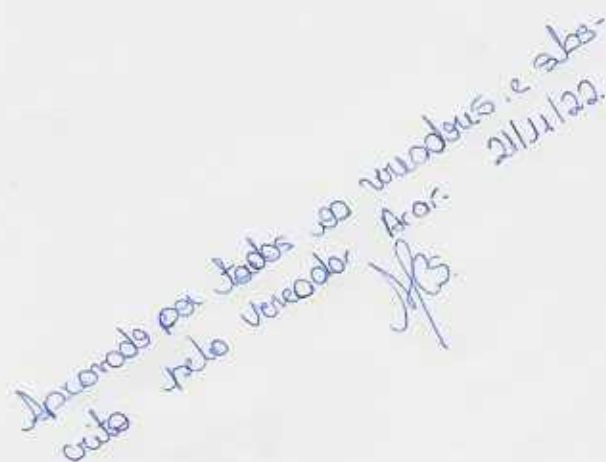 Aprovado por todos os vereadores e subs-
crito pelo vereador Arar. 21/11/22.